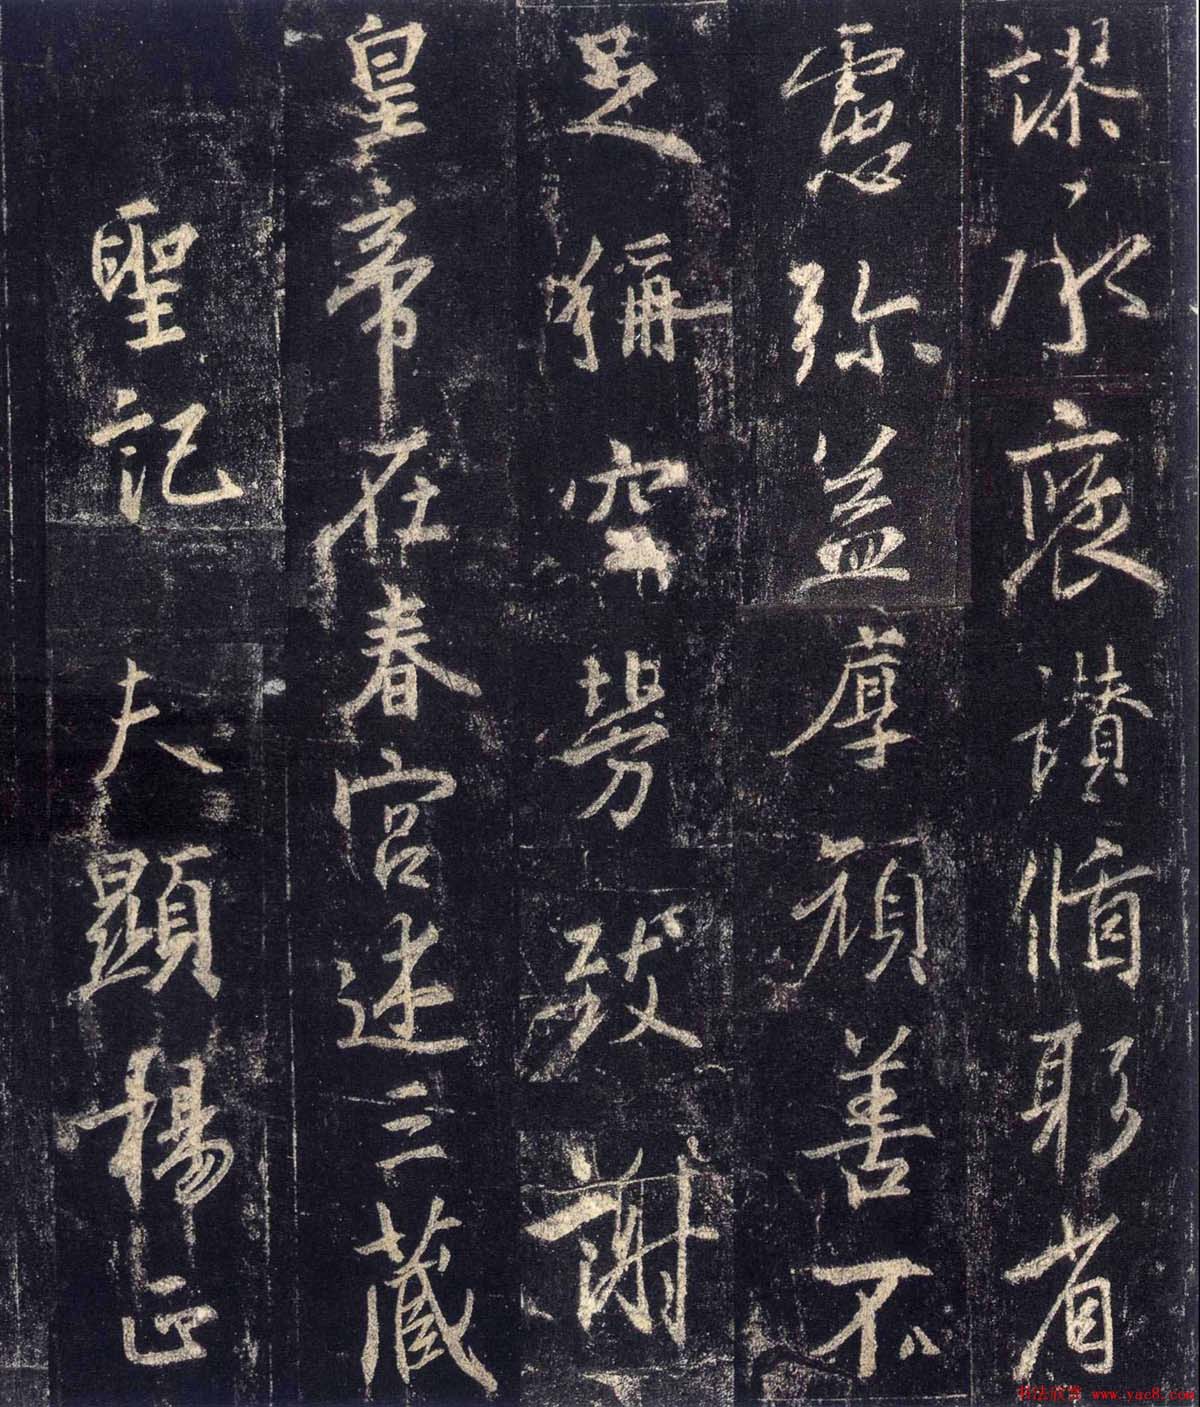 謬承褒讚循躬省
慮弥益厚顔善不
足稱空勞致謝
皇帝在春宮述三藏
聖記
夫顯楊正
www.yac8.com